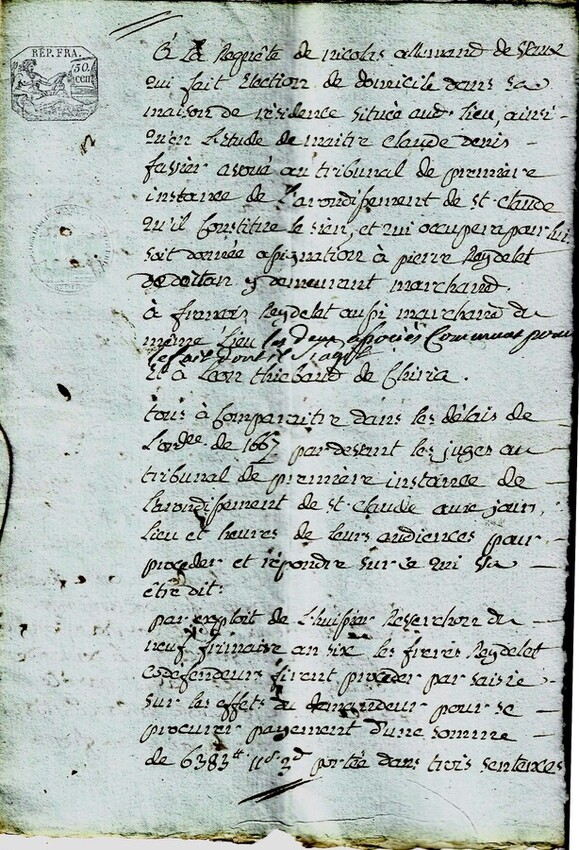 RÉP. FRA.
50 cen
à La Requête de nicolas allemand de
qui fait Election de domicile dans sa
maison de résidence située audt lieu, ainsi
qu'en L'Etude de maitre Claude denis
avoué au tribunal de première
instance de L'arondissement de st Claude
qu'il Constitue le sien, et qui occupera pour lui
soit donnée assignation à pierre Reydelet
y demeurant marchand.
à françois Reydelet aussi marchand du
même Lieu les deux associés
le fait dont il s'agit
Et à Léon thiebaud de Chiria.
tous à Comparaitre dans les délais de
L'ordce de 1667 pardevant les juges au
tribunal de première instance de
L'arondissement de st Claude aux jour,
Lieu et heures de leurs audiences pour
proceder et répondre sur ce qui va
être dit:
par exploit de L'huissier du
neuf frimaire an six les frères Reydelet
Codefendeurs firent proceder par saisie
sur les effets du demandeur pour se
procurer payement d'une somme
de 6383tt 11s 2d portée dans trois sentences